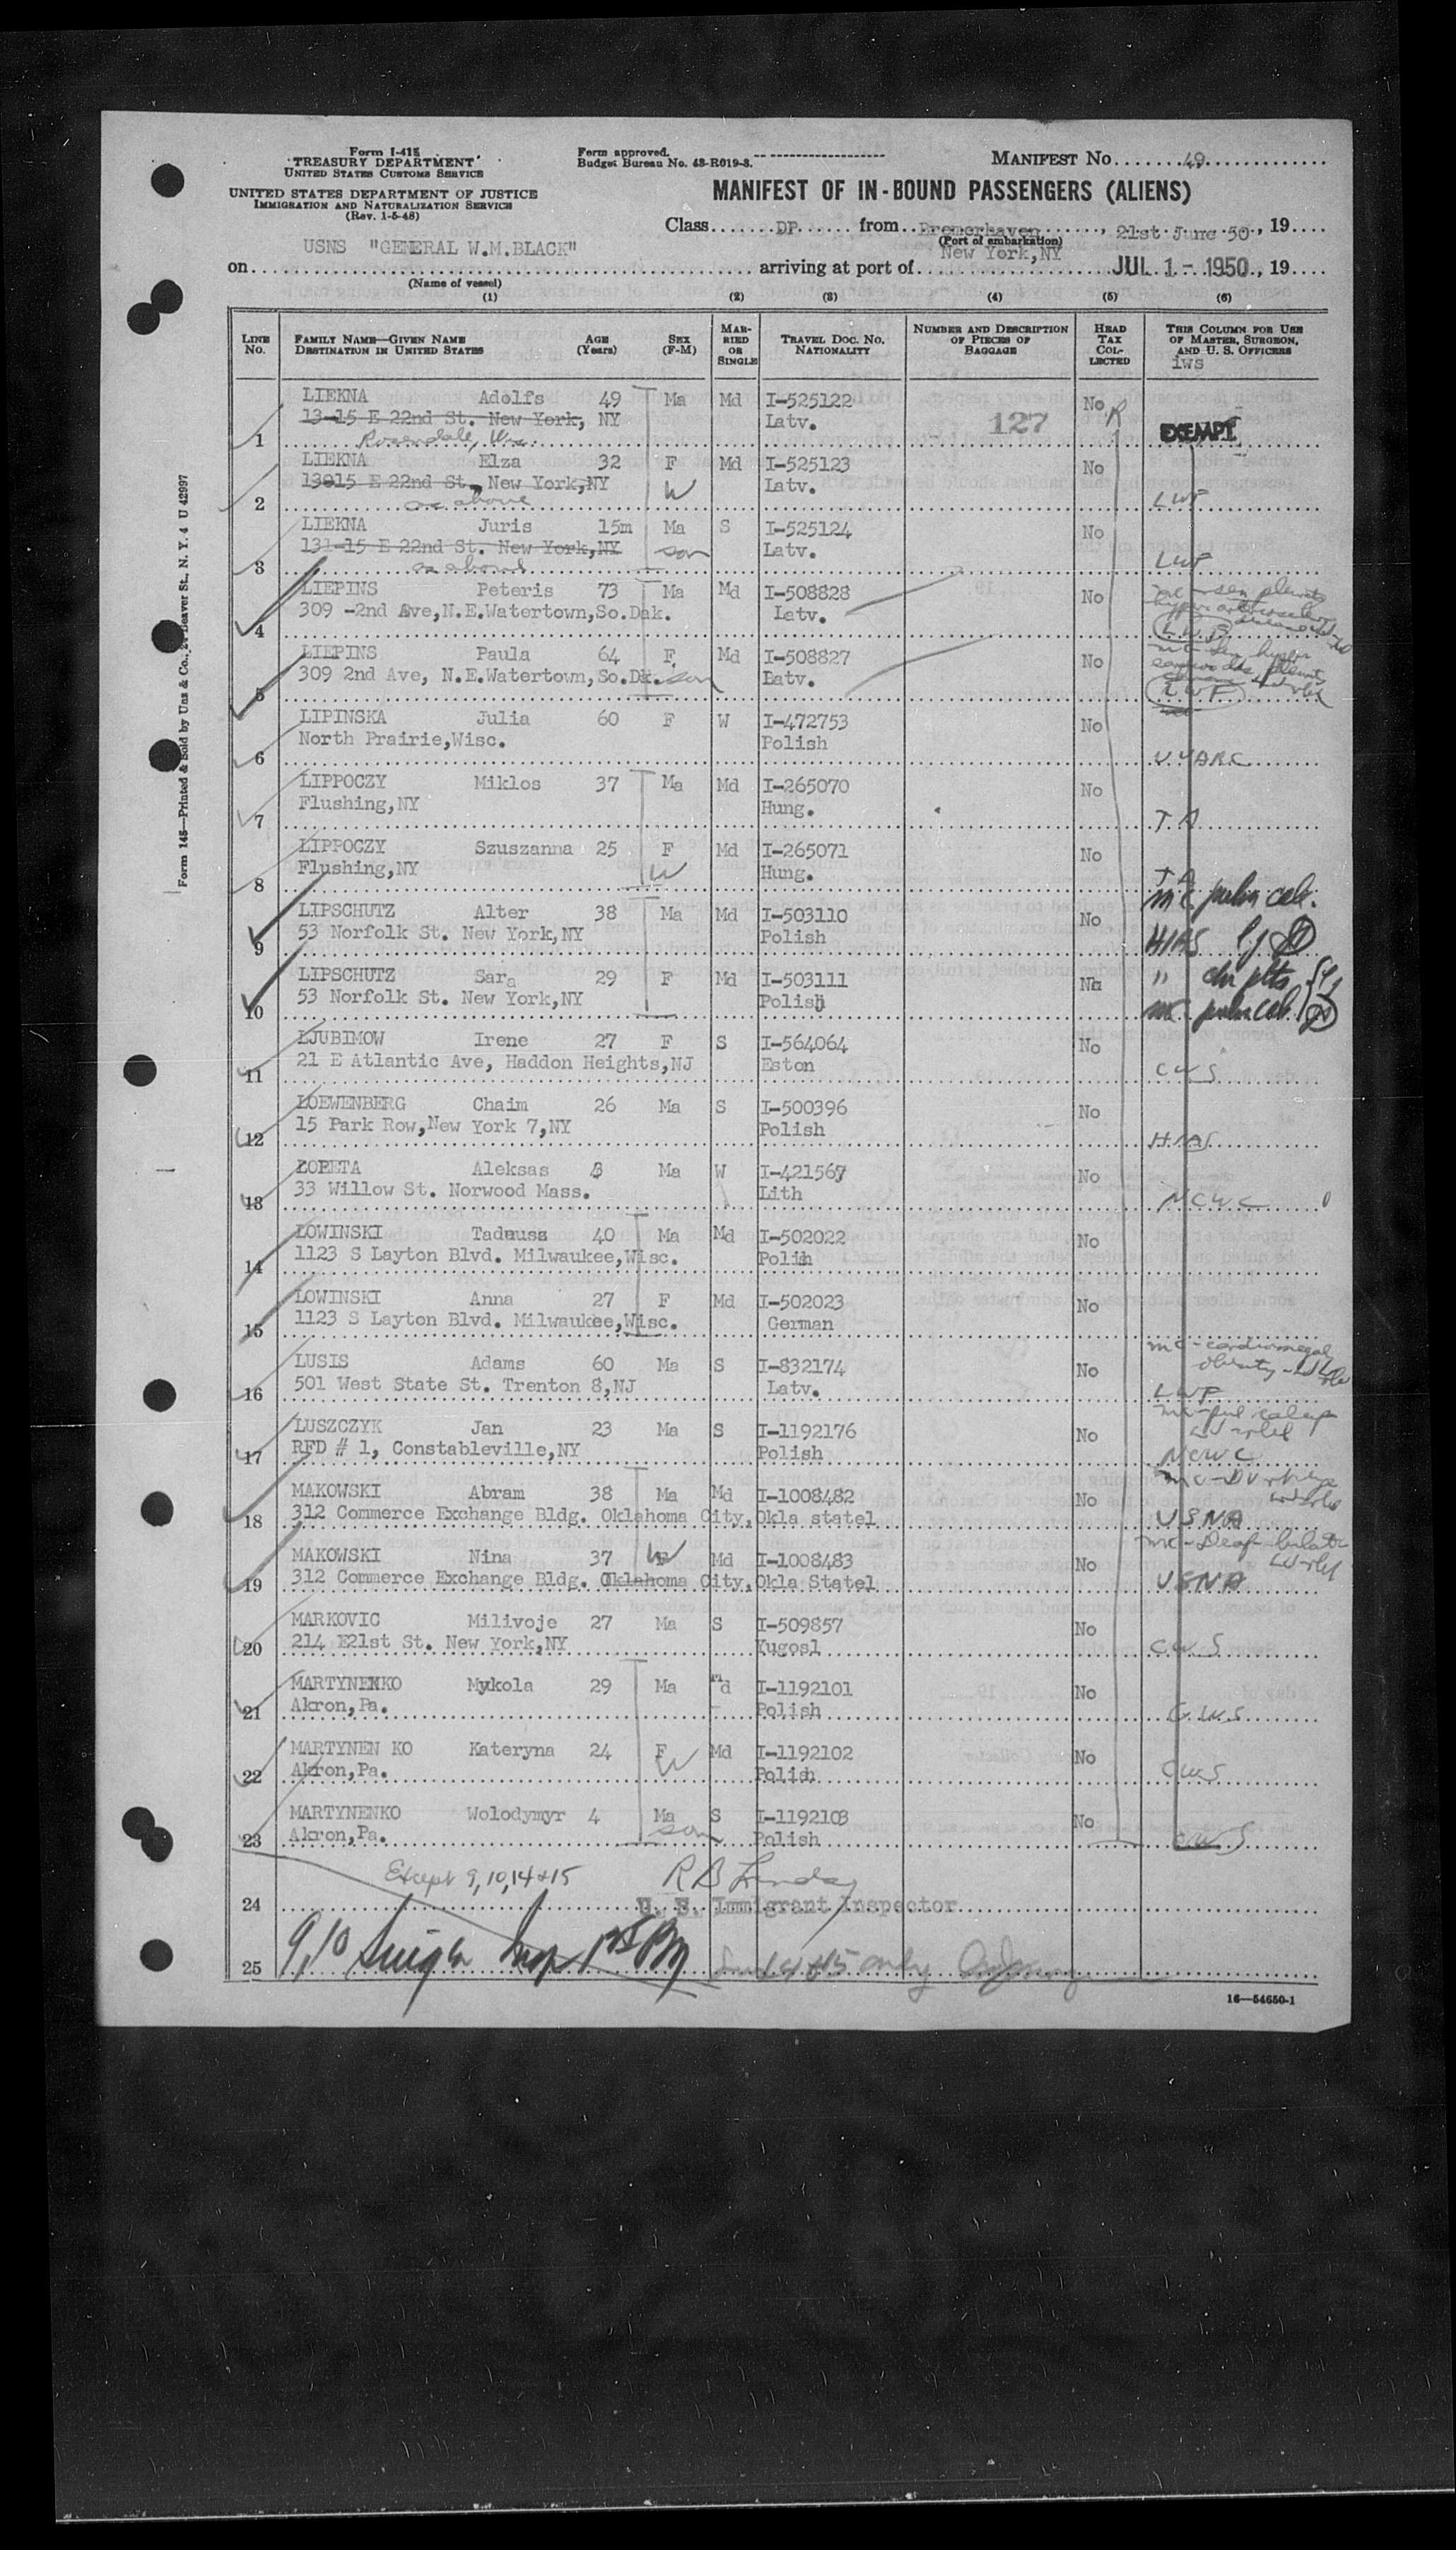 Form I-415
TREASURY DEPARTMENT
UNITED STATES CUSTOMS SERVICE
UNITED STATES DEPARTMENT OF JUSTICE
IMMIGRATION AND NATURALIZATION SERVICE
(Rev. 1-5-48)
Form approved.
Budget Bureau No. 43-R019-3.
MANIFEST No. 49
MANIFEST OF IN-BOUND PASSENGERS (ALIENS)
Class DP from Bremerhaven, 21st June 50, 19
(Port of embarkation)
on USNS "GENERAL W.M.BLACK" arriving at port of New York,NY JUL 1 - 1950, 19
(Name of vessel)
(1) (2) (3) (4) (5) (6)
LINE No. FAMILY NAME—GIVEN NAME DESTINATION IN UNITED STATES AGE (Years) SEX (F-M) MARRIED OR SINGLE TRAVEL DOC. NO. NATIONALITY NUMBER AND DESCRIPTION OF PIECES OF BAGGAGE HEAD TAX COLLECTED THIS COLUMN FOR USE OF MASTER, SURGEON, AND U. S. OFFICERS
iws
LIEKNA Adolfs 49 Ma Md I-525122 No
13-15 E 22nd St. New York, NY Latv. 127 EXEMPT
1 Rosendale, Wis.
LIEKNA Elza 32 F Md I-525123 No
13015 E 22nd St. New York,NY W Latv.
2 as above LWF
LIEKNA Juris 15m Ma S I-525124 No
131-15 E 22nd St. New York,NY son Latv.
3 as above LWF
LIEPINS Peteris 73 Ma Md I-508828 No
309 -2nd Ave,N.E.Watertown,So.Dak. Latv.
4 LWF
LIEPINS Paula 64 F Md I-508827 No
309 2nd Ave, N.E.Watertown,So.Dk. Batv.
5 LWF
LIPINSKA Julia 60 F W I-472753 No
North Prairie,Wisc. Polish
6
LIPPOCZY Miklos 37 Ma Md I-265070 No
Flushing,NY Hung.
7
LIPPOCZY Szuszanna 25 F Md I-265071 No
Flushing,NY W Hung.
8
LIPSCHUTZ Alter 38 Ma Md I-503110 No
53 Norfolk St. New York,NY Polish
9 HIAS
LIPSCHUTZ Sara 29 F Md I-503111 No
53 Norfolk St. New York,NY Polish
10
LJUBIMOW Irene 27 F S I-564064 No
21 E Atlantic Ave, Haddon Heights,NJ Eston
11 CWS
LOEWENBERG Chaim 26 Ma S I-500396 No
15 Park Row,New York 7,NY Polish
12 HIAS
LOPETA Aleksas Ma W I-421567 No
33 Willow St. Norwood Mass. Lith
13 NCWC
LOWINSKI Tadeusz 40 Ma Md I-502022 No
1123 S Layton Blvd. Milwaukee,Wisc. Polish
14
LOWINSKI Anna 27 F Md I-502023 No
1123 S Layton Blvd. Milwaukee,Wisc. German
15
LUSIS Adams 60 Ma S I-832174 No
501 West State St. Trenton 8,NJ Latv.
16 LWF
LUSZCZYK Jan 23 Ma S I-1192176 No
RFD # 1, Constableville,NY Polish
17 NCWC
MAKOWSKI Abram 38 Ma Md I-1008482 No
312 Commerce Exchange Bldg. Oklahoma City,Okla statel
18 USNA
MAKOWSKI Nina 37 F W Md I-1008483 No
312 Commerce Exchange Bldg. Oklahoma City,Okla Statel
19 USNA
MARKOVIC Milivoje 27 Ma S I-509857 No
214 E21st St. New York,NY Yugosl
20 CWS
MARTYNENKO Mykola 29 Ma Md I-1192101 No
Akron,Pa. Polish
21 CWS
MARTYNEN KO Kateryna 24 F Md I-1192102 No
Akron,Pa. W Polish
22 CWS
MARTYNENKO Wolodymyr 4 Ma S I-1192103 No
Akron,Pa. son Polish
23 CWS
Except 9,10,14+15
24 U. S. Immigrant Inspector
25 9,10 14+15 only
16—54650-1
Form 145—Printed & Sold by Unz & Co., 24 Beaver St., N. Y. 4 U 42997